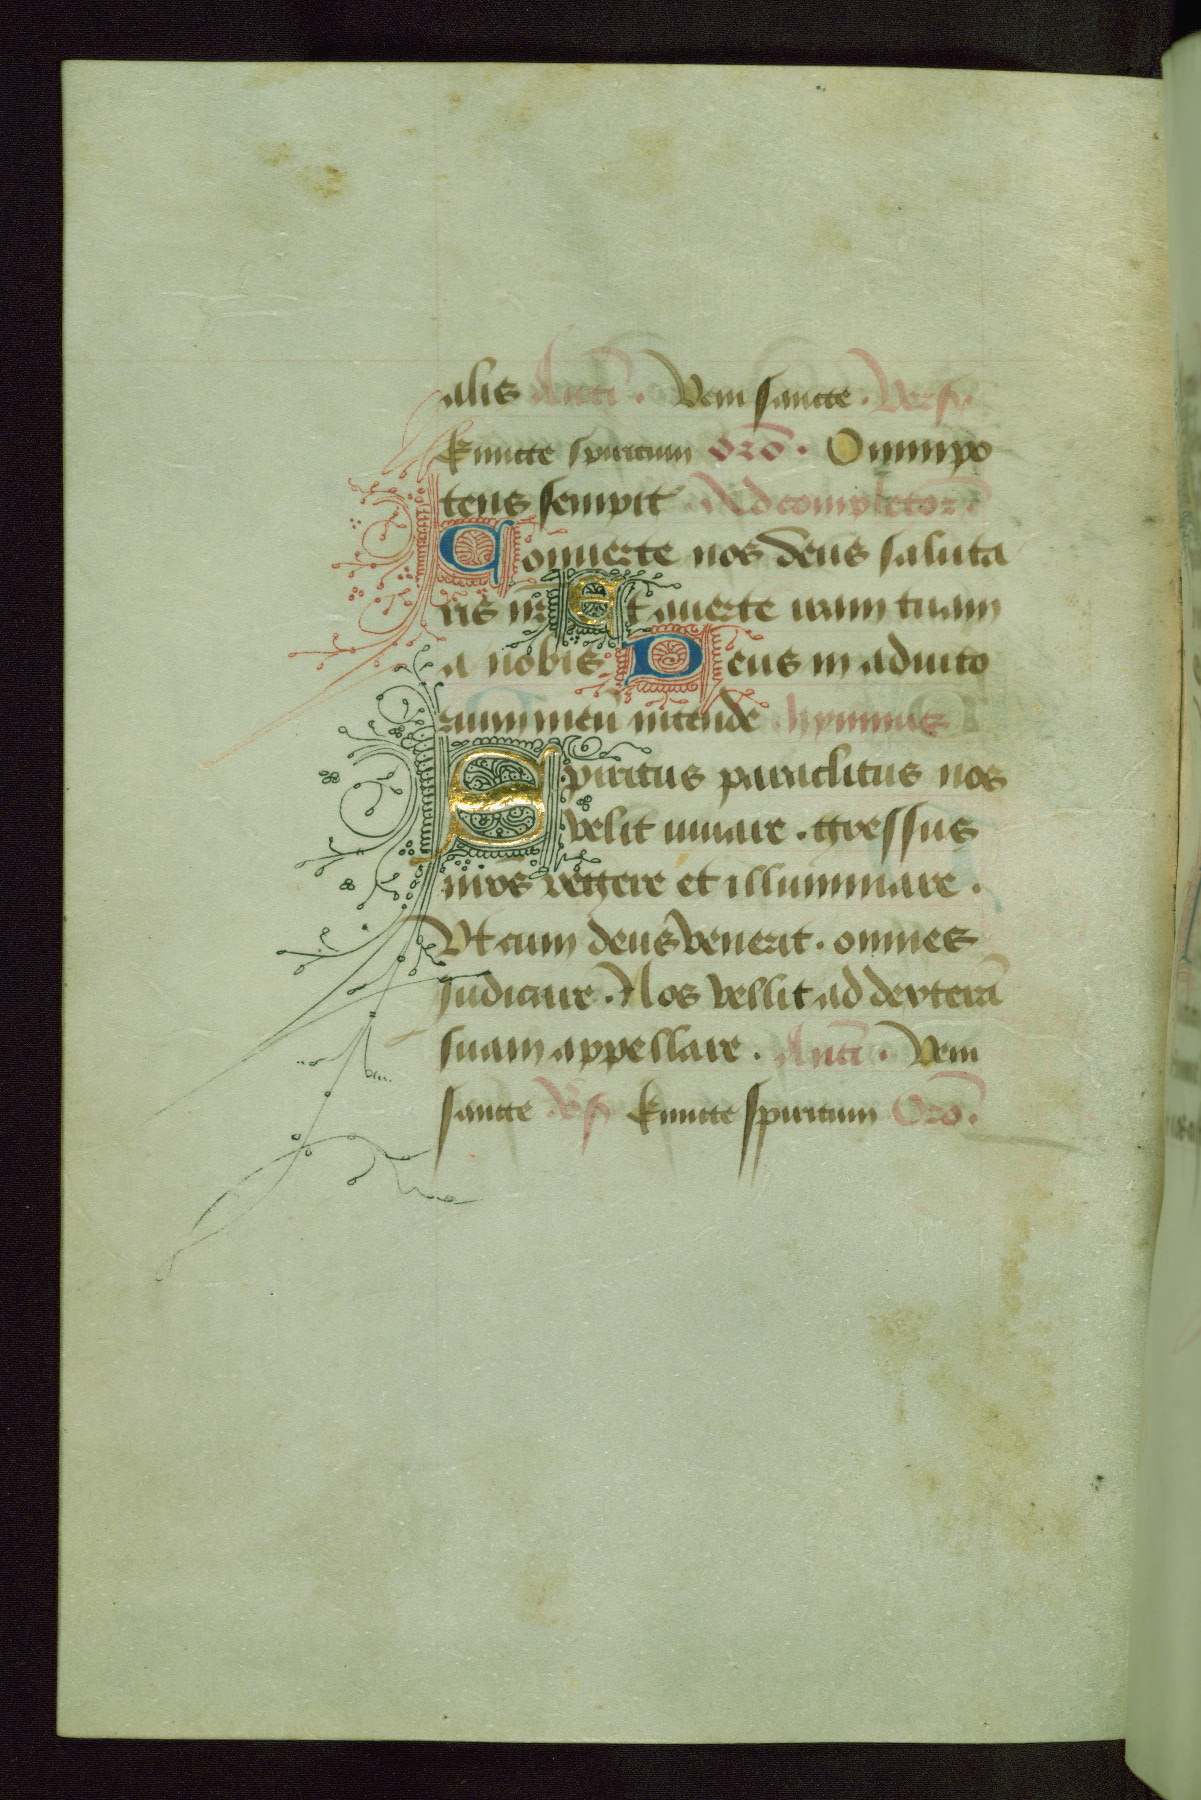 alis Anti͞ . Veni sancte . Vers̄ .
Emitte spiritum Oro͞ . Omnipo
tens sempit̄ . Ad completor͞
Conuerte nos deus saluta
ris nr̄ Et auerte iram tuam
a nobis Deus in adiuto
rium meū intende . hymnus
Spiritus paraclitus nos
velit iuuare . gressus
nr̄os regere et illuminare .
Vt cum deus venerit . omnes
Judicare . Nos vellit ad dexterā
suam appellare . Anti͞ . Veni
sancte Vs̄ Emitte spiritum Oro͞ .